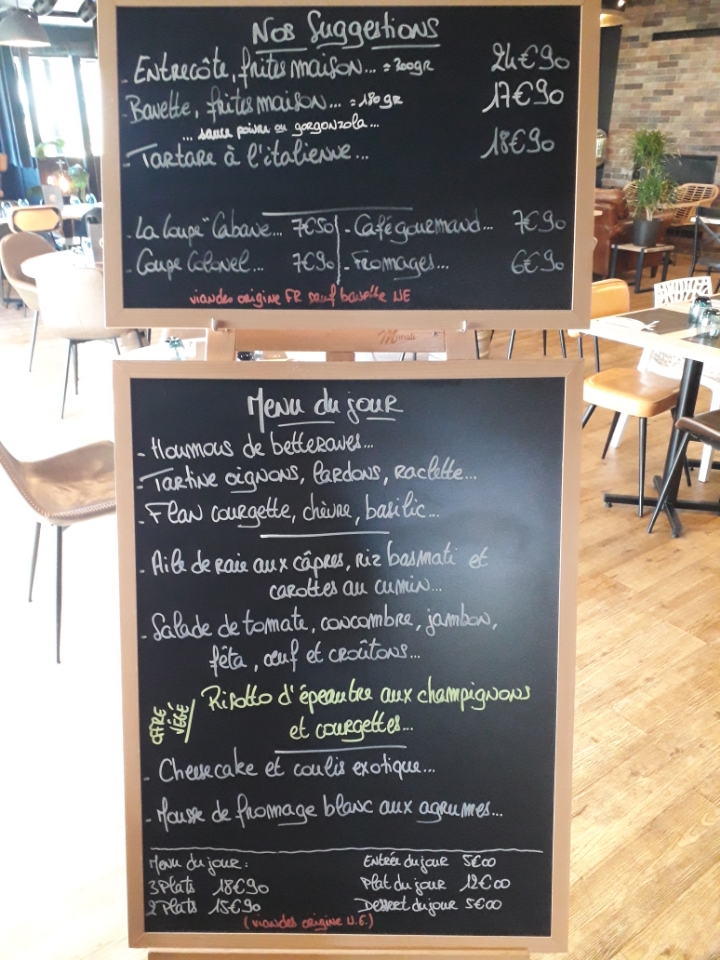 Nos Suggestions
- Entrecôte, frites maison... = 300gr 24€90
- Bavette, frites maison... = 180gr 17€90
... sauce poivre ou gorgonzola...
- Tartare à l'italienne... 18€90
- La Coupe "Cabane... 7€50 - Café gourmand... 7€90
- Coupe Colonel... 7€90 - Fromages... 6€90
viandes origine FR sauf bavette UE
Menu du jour
- Houmous de betteraves...
- Tartine oignons, lardons, raclette...
- Flan courgette, chèvre, basilic...
- Aile de raie aux câpres, riz basmati et
carottes au cumin...
- Salade de tomate, concombre, jambon,
féta, œuf et croûtons...
OFFRE VÉGÉ / Risotto d'épeautre aux champignons
et courgettes...
- Cheesecake et coulis exotique...
- Mousse de fromage blanc aux agrumes...
Menu du jour : Entrée du jour 5€00
3 Plats 18€90 Plat du jour 12€00
2 Plats 15€90 Dessert du jour 5€00
(viandes origine U.E.)